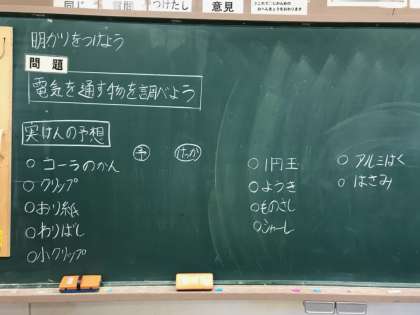 質問
つけたし
意見
明かりをつけよう
問題
電気を通す物を調べよう
実けんの予想
予 けっか
○コーラのかん
○クリップ
○おり紙
○わりばし
○小クリップ
○1円玉
○ようき
○ものさし
○シャーレ
○アルミはく
○はさみ